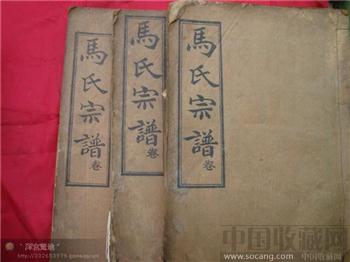 馬氏宗譜 卷
馬氏宗譜 卷
馬氏宗譜 卷
中国收藏网
www.socang.com 中国收藏网